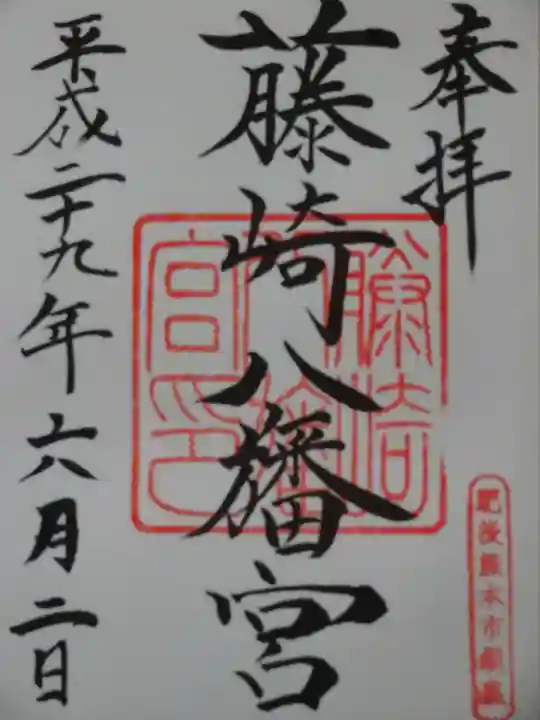 奉拝
藤崎八旛宮
藤崎八旛宮印
肥後熊本市鎮座
平成二十九年六月二日